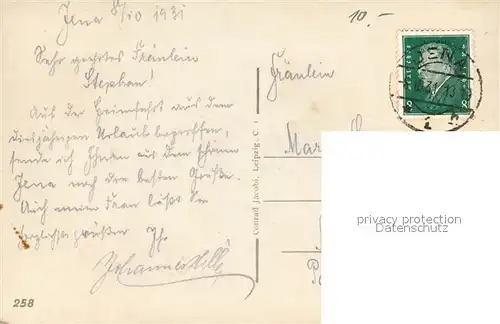 Jena 8/10 1931
10.-
Sehr geehrtes Fräulein
Stephan!
Auf der Heimfahrt aus dem
diesjährigen Urlaub begriffen,
sende ich Ihnen aus dem schönen
Jena noch die besten Grüße.
Auch meine Frau läßt Sie
herzlichst grüßen Ihr
Johannes
Fräulein
Mar
Conrad Jacobi, Leipzig-C. 1
JENA
8 8
2
258
privacy protection
Datenschutz